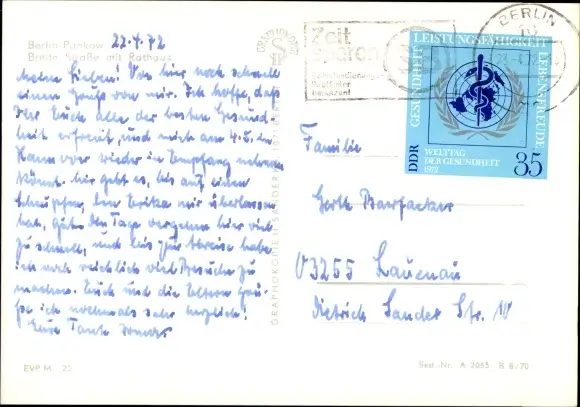 Berlin-Pankow 22.4.72
Breite Straße mit Rathaus
Meine Lieben! Von hier noch schnell
einen Gruß von mir. Ich hoffe, daß
Ihr Euch alle der besten Gesund-
heit erfreut, und mich am 4.5. in
Hannover wieder in Empfang nehmen
könnt. Hier geht es, bis auf einen
Schnupfen, den Erika mir überlassen
hat, gut. Den Tage vergehen hier viel
zu schnell, und bis zur Abreise habe
ich noch reichlich viel Besuche zu
machen. Euch und die Eltern grü-
ße ich nochmals sehr herzlich!
Eure Tante
EVP M 20
GRAPHOKOPIE
Zeit
sparen
BERLIN
GESUNDHEIT LEISTUNGSFÄHIGKEIT LEBENSFREUDE
DDR WELTTAG
DER GESUNDHEIT
1972 35
Familie
Gerth
V3255 Lauenau
Dietrich Sander Str. 10
Best.-Nr. A 2053 B 8/70